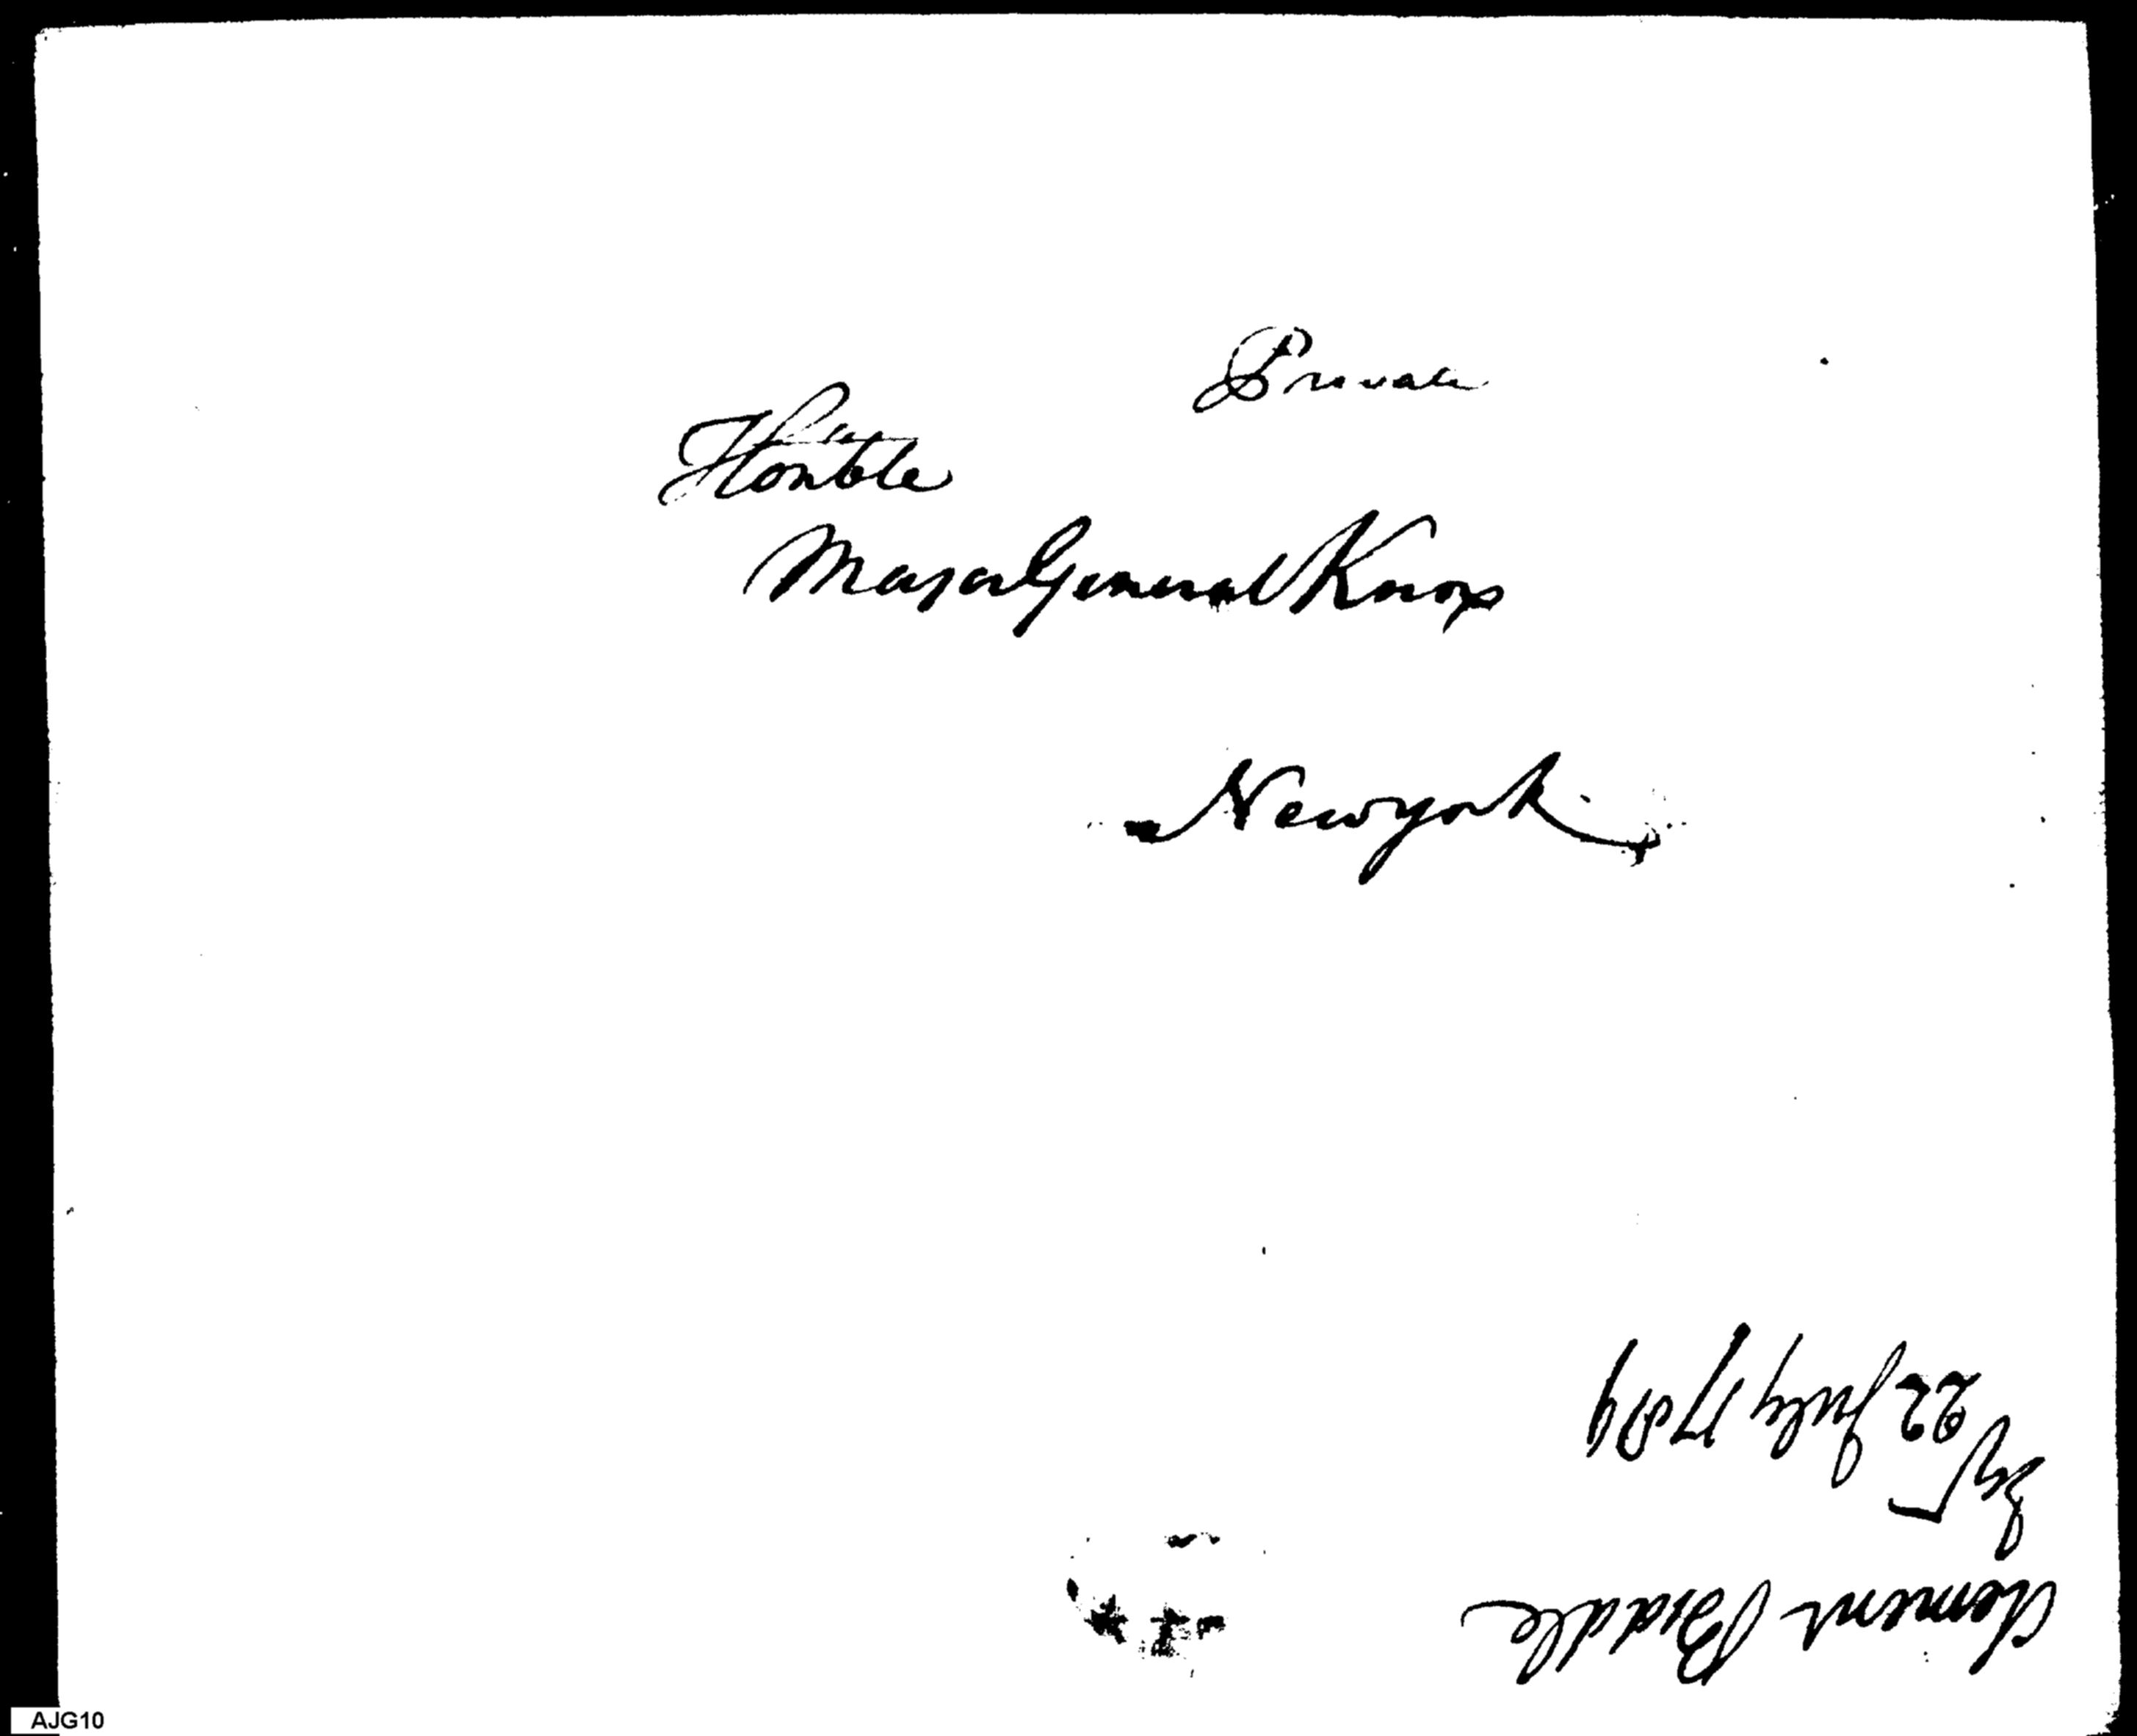 Private
Honble
Major General Knox
Newyork
Clement Biddle
22 July 1789
AJG10